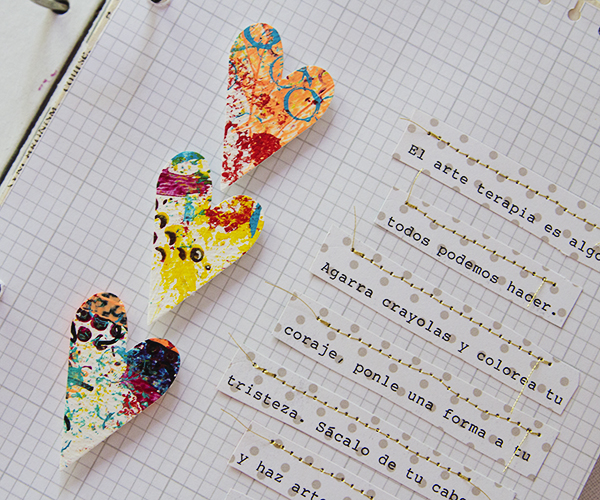 El arte terapia es algo
todos podemos hacer.
Agarra crayolas y colorea tu
coraje, ponle una forma a tu
tristeza. Sácalo de tu
y haz